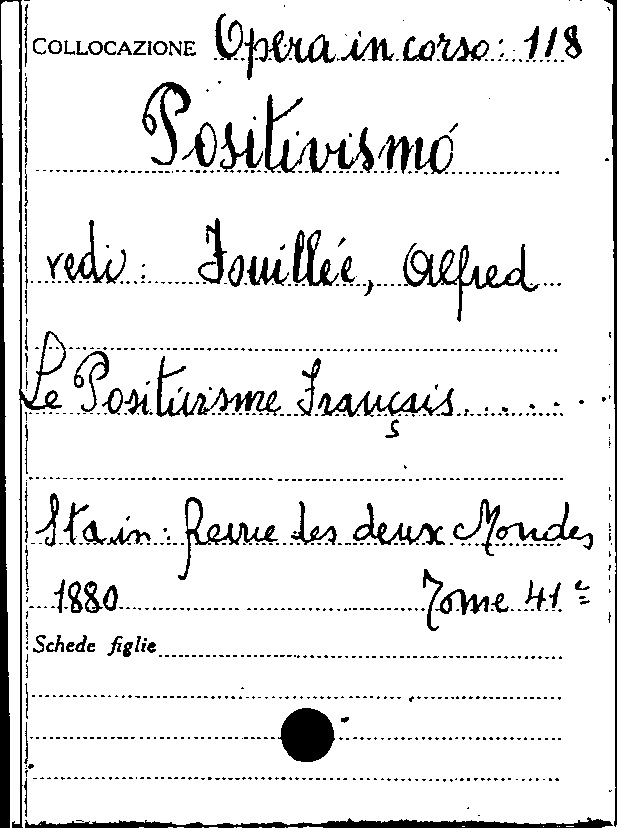 COLLOCAZIONE Opera in corso: 118
Positivismo
vedi: Fouillée, Alfred
Le Positivisme Français......
Sta in: Revue des deux Mondes
1880 Tome 41e
Schede figlie